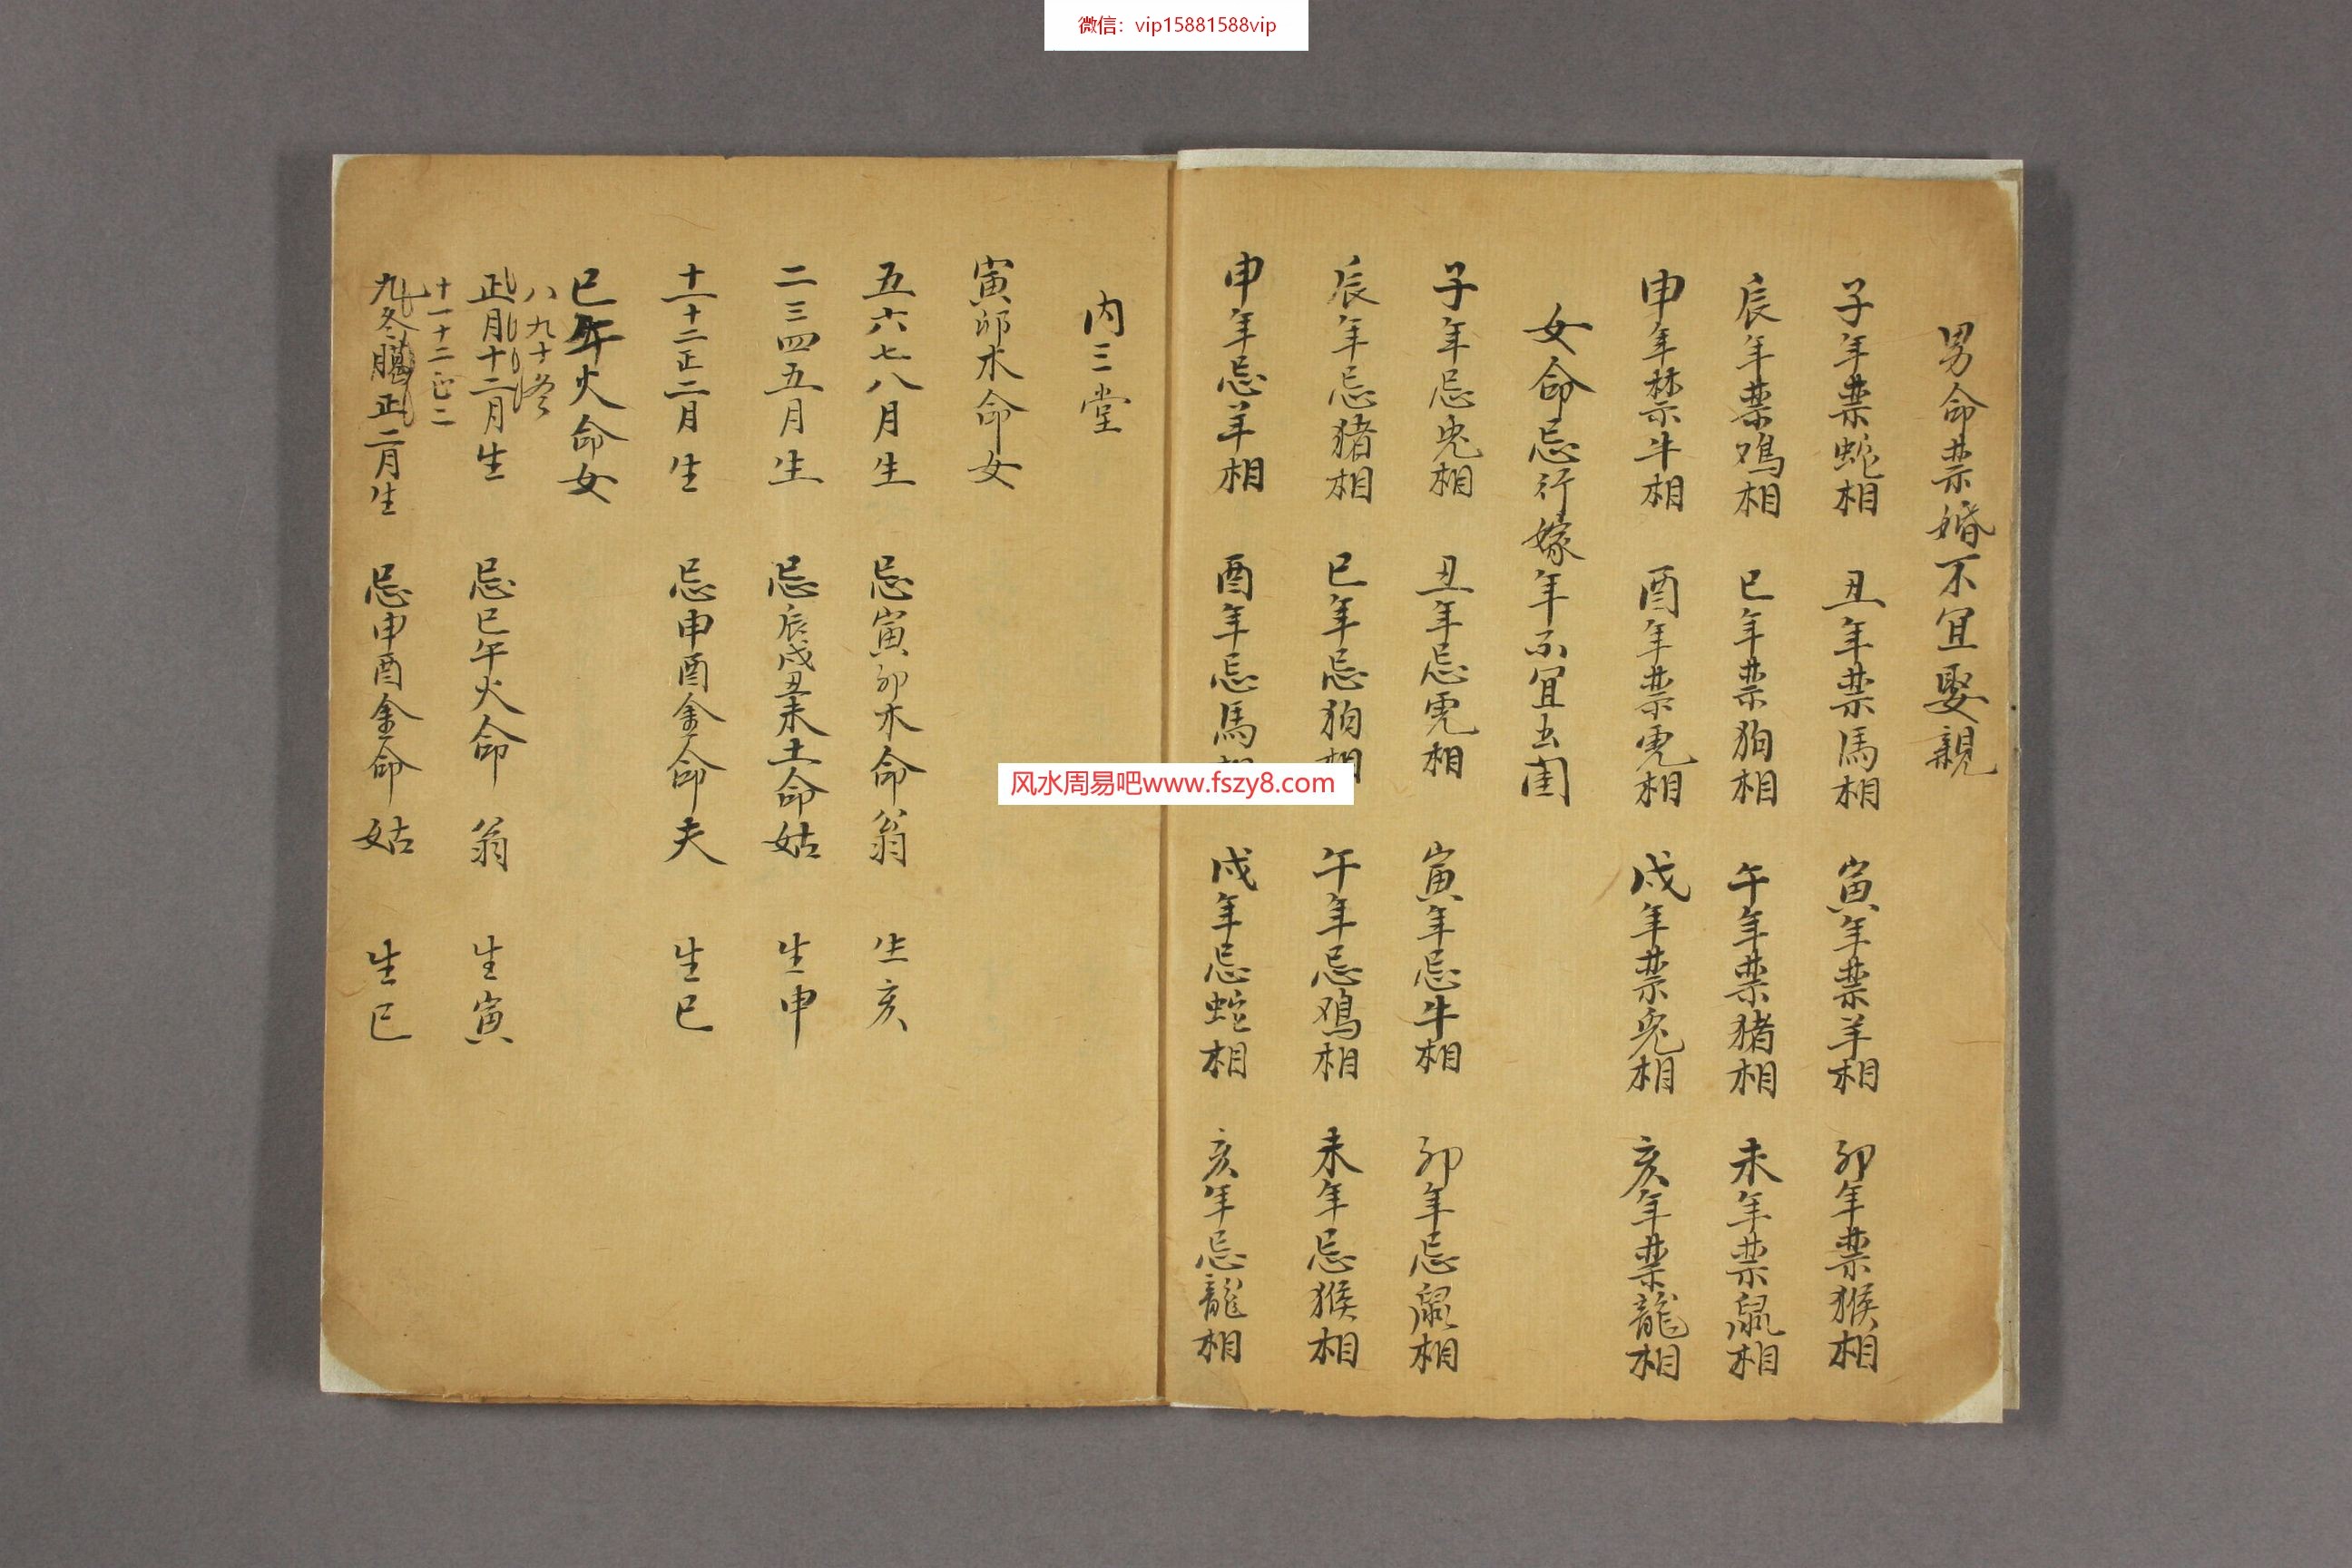 微信：vip15881588vip
男命禁婚不宜娶親
子年禁蛇相 丑年禁馬相 寅年禁羊相 卯年禁猴相
辰年禁鸡相 巳年禁狗相 午年禁猪相 未年禁鼠相
申年禁牛相 酉年禁虎相 戌年禁兎相 亥年禁龍相
女命忌行嫁年不宜出閨
子年忌兎相 丑年忌虎相 寅年忌牛相 卯年忌鼠相
辰年忌猪相 巳年忌狗相 午年忌鸡相 未年忌猴相
申年忌羊相 酉年忌馬 戌年忌蛇相 亥年忌龍相
风水周易吧www.fszy8.com
内三堂
寅卯木命女
五六七八月生 忌寅卯木命翁 生亥
二三四五月生 忌辰戌丑未土命姑 生申
十一十二正二月生 忌申酉金命夫 生巳
巳午火命女
八九十冬
正月十二月生 忌巳午火命翁 生寅
十一十二正二
九冬臘正二月生 忌申酉金命姑 生巳